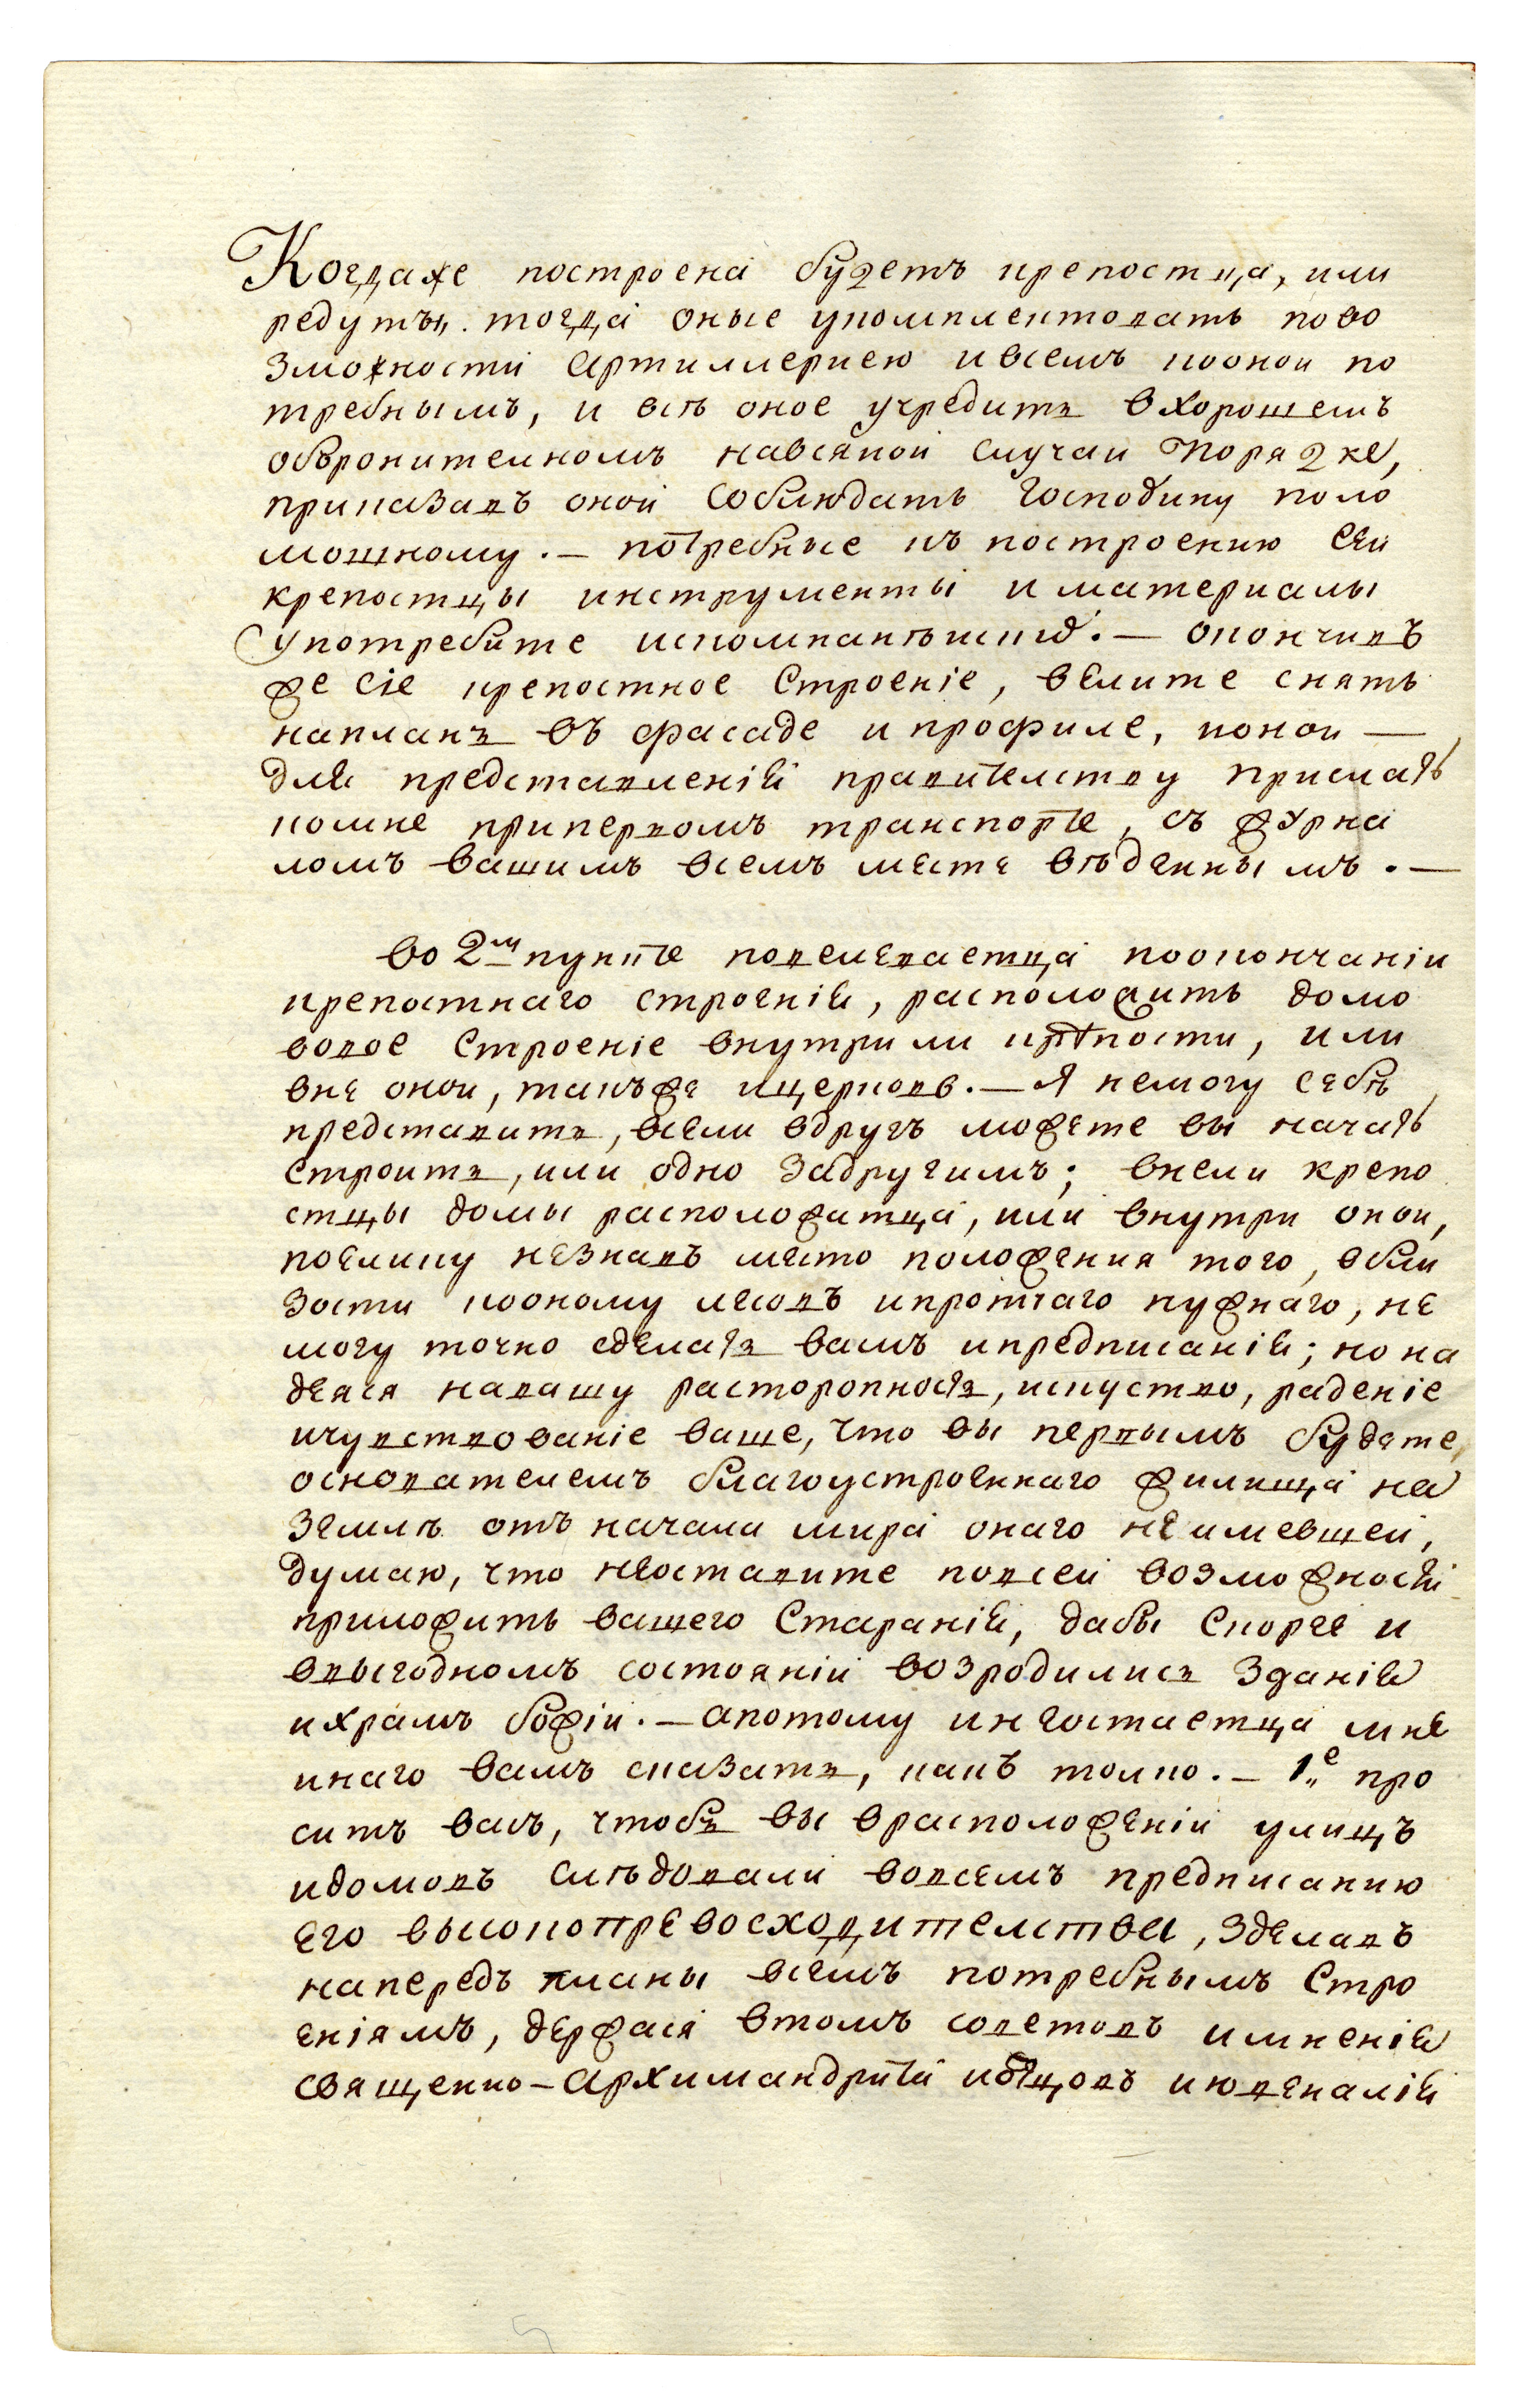 Когдаже построена будетъ крепостца, или
редутъ„. тогда оные укомплектовать пово
зможности артиллериею ивсемъ коонои по
требнымъ, и всѣ оное учредить вхорошемъ
оборонителномъ навсякои случаи порядке,
приказавъ онои соблюдать господину поло
мошному. — потребные къ построению сеи
крепостцы инструменты и материалы
употребите искомпанѣискихъ. — окончивъ
же сіе крепостное строеніе, велите снять
напланъ въ фасаде и профиле, конои —
для представленія правителству прислать
комне припервомъ транспорте, съ журна
ломъ вашимъ всемъ месте вѣденнымъ. —
во 2м пункте повелевается поокончаніи
крепостнаго строенія, расположить домо
вое строеніе внутрили крѣпости, или
вне онои, такъже ицерковь. — Я немогу себѣ
представить, всели вдругъ можете вы начать
строить, или одно задругимъ; внели крепо
стцы домы расположатца, или внутри онои,
поелику незнавъ место положения того, вбли
зости кооному лесовъ ипротчаго нужнаго, не
могу точно сделать вамъ ипредписанія; но на
деяся навашу расторопность, искуство, раденіе
ичувствованіе ваше, что вы первымъ будете
основателемъ благоустроеннаго жилища на
землѣ отъ начала мира онаго неимевшеи,
думаю, что неоставите повсеи возможности
приложить вашего старанія, дабы скорее и
ввыгодномъ состояніи возродились зданія
ихрамъ божіи. — апотому инеостаетца мне
инаго вамъ сказать, какъ толко. — 1„е про
сить васъ, чтобъ вы врасположеніи улицъ
идомовъ слѣдовали вовсемъ предписанию
его высокопревосходителства, зделавъ
напередъ планы всемъ потребнымъ стро
еніямъ, держася втомъ советовъ имненія
священно-архимандрита иотцовъ июденалія